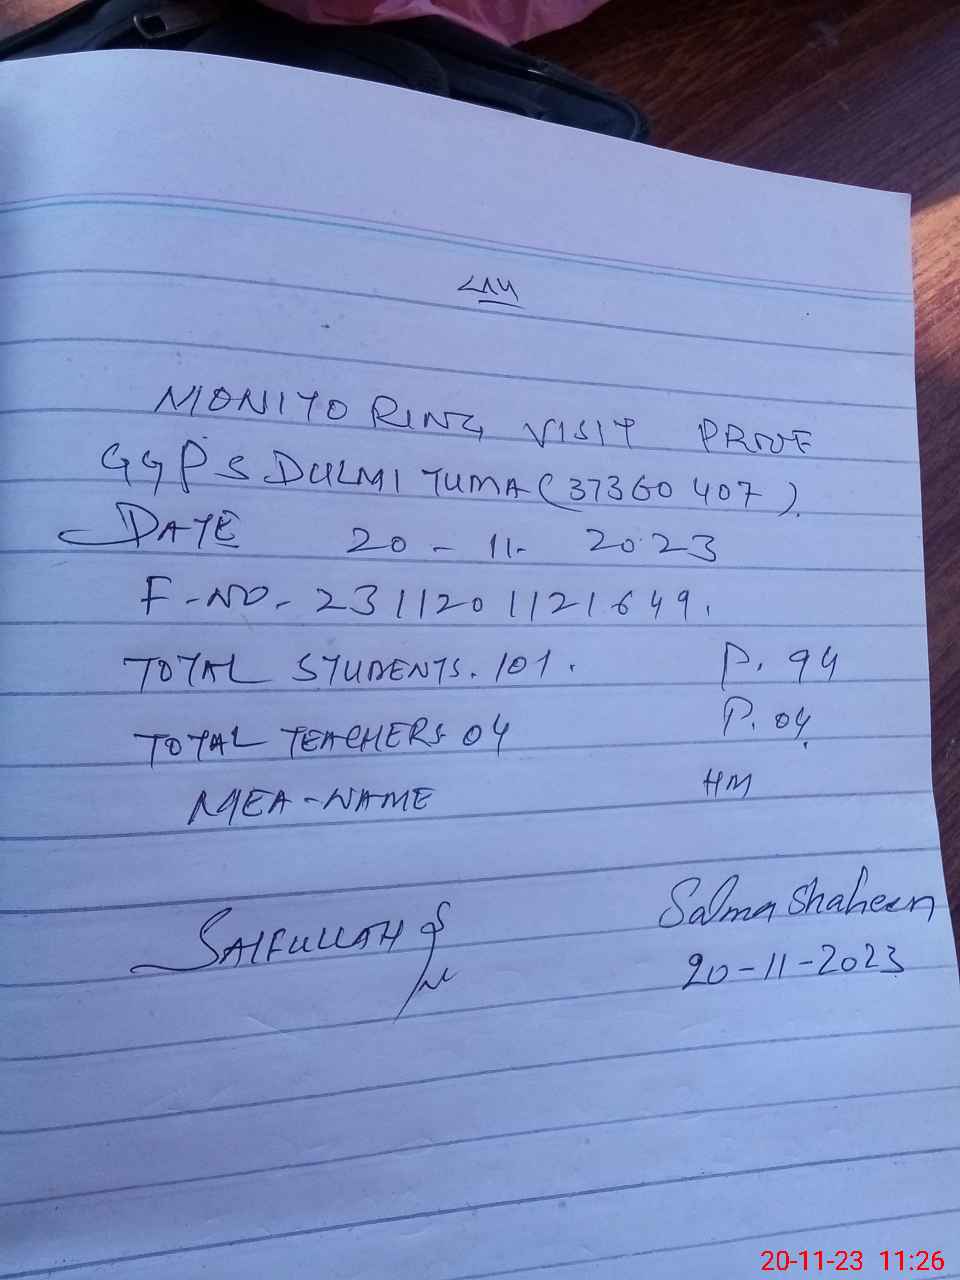 MONITORING VISIT PROVE
GGPS DULMI TUMA (37360407).
DATE 20-11-2023
F-NO-2311201121649.
TOTAL STUDENTS. 101. P. 94
TOTAL TEACHERS 04 P. 04
MEA-NAME HM
SAIFULLAH Salma Shaheen
20-11-2023
20-11-23 11:26